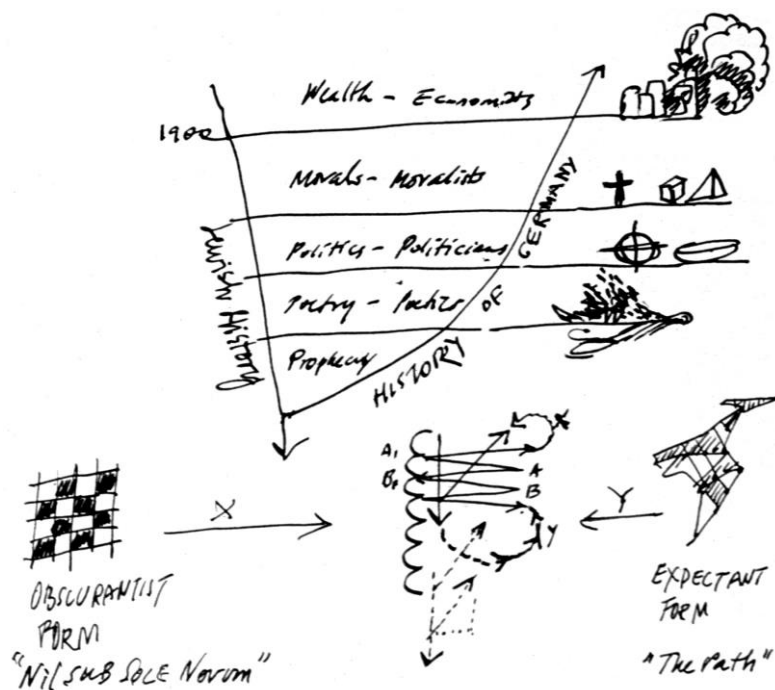 Wealth - Economists
1900
Morals - Moralists
Politics - Politicians
Poetry -
Prophecy
Jewish History
HISTORY OF GERMANY
A, X
B, A
B
Y
X
Y
OBSCURANTIST
FORM
"Nil SUB SOLE Novum"
EXPECTANT
FORM
"The Path"